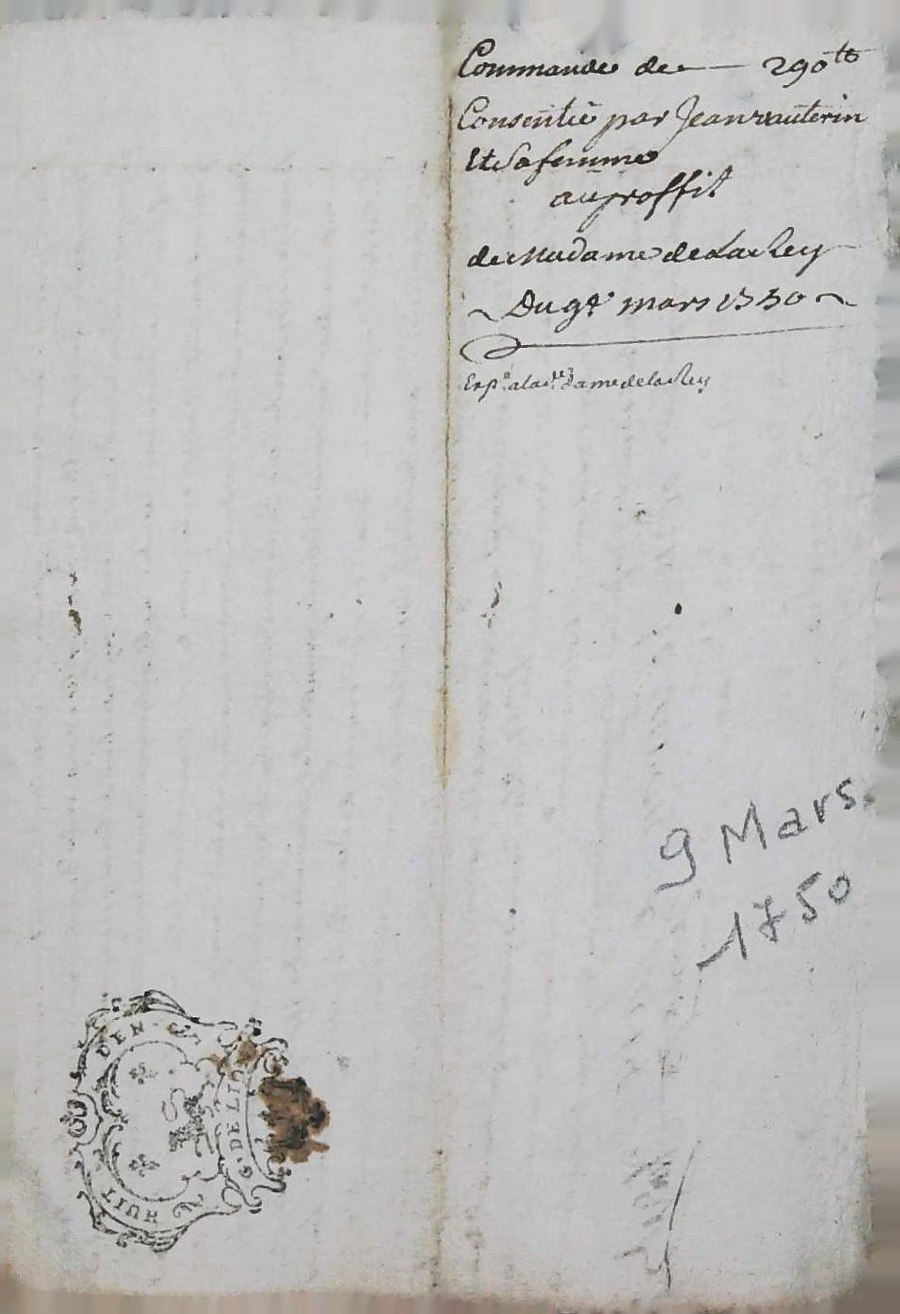 Commande de — 290 tt
Consentie par Jean vauterin
Et Sa femme
au proffit
de Madame de Lac Rey
Du 9e mars 1750
Exp.e a lad.e dame de lac Rey
9 Mars
1750
HUIT DEN.
G. DE LI